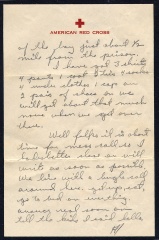 AMERICAN RED CROSS
of the bay just about 1/2
mile from the prison.
I have got 3 shirts
4 pants 1 coat 2 ties 4 socks
4 under clothes 1 cap and
2 pair of shoes so we
will get about that much
more when we get over
there.
Well folks it is about
time for mess call so I
better close so will
write as soon as possible
We live with a bugle call
around here, get up, eat,
go to bed on
tell the kids I said hello